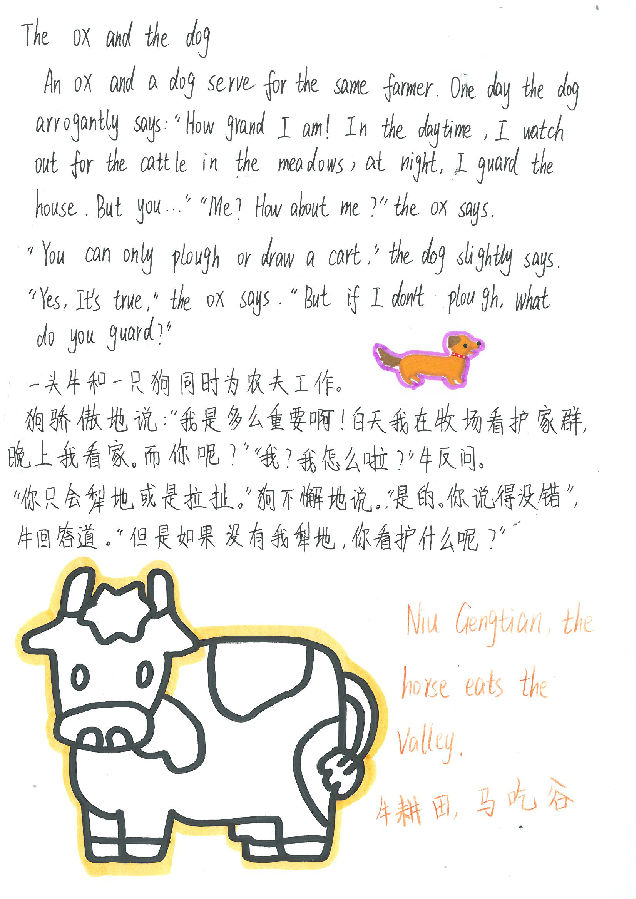 The ox and the dog
An ox and a dog serve for the same farmer. One day the dog
arrogantly says: "How grand I am! In the daytime, I watch
out for the cattle in the meadows, at night, I guard the
house. But you..." "Me? How about me?" the ox says.
"You can only plough or draw a cart." the dog slightly says.
"Yes, It's true," the ox says. "But if I don't plough, what
do you guard?"
一头牛和一只狗同时为农夫工作。
狗骄傲地说:“我是多么重要啊!白天我在牧场看护家群,
晚上我看家。而你呢?”“我?我怎么啦?”牛反问。
“你只会犁地或是拉扯。”狗不懈地说。“是的。你说得没错”,
牛回答道。“但是如果没有我犁地,你看护什么呢?”
Niu Gengtian, the
horse eats the
Valley.
牛耕田,马吃谷